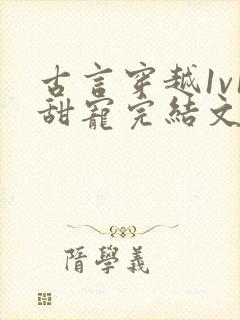 古言穿越1v1
甜寵完結文
隋學義